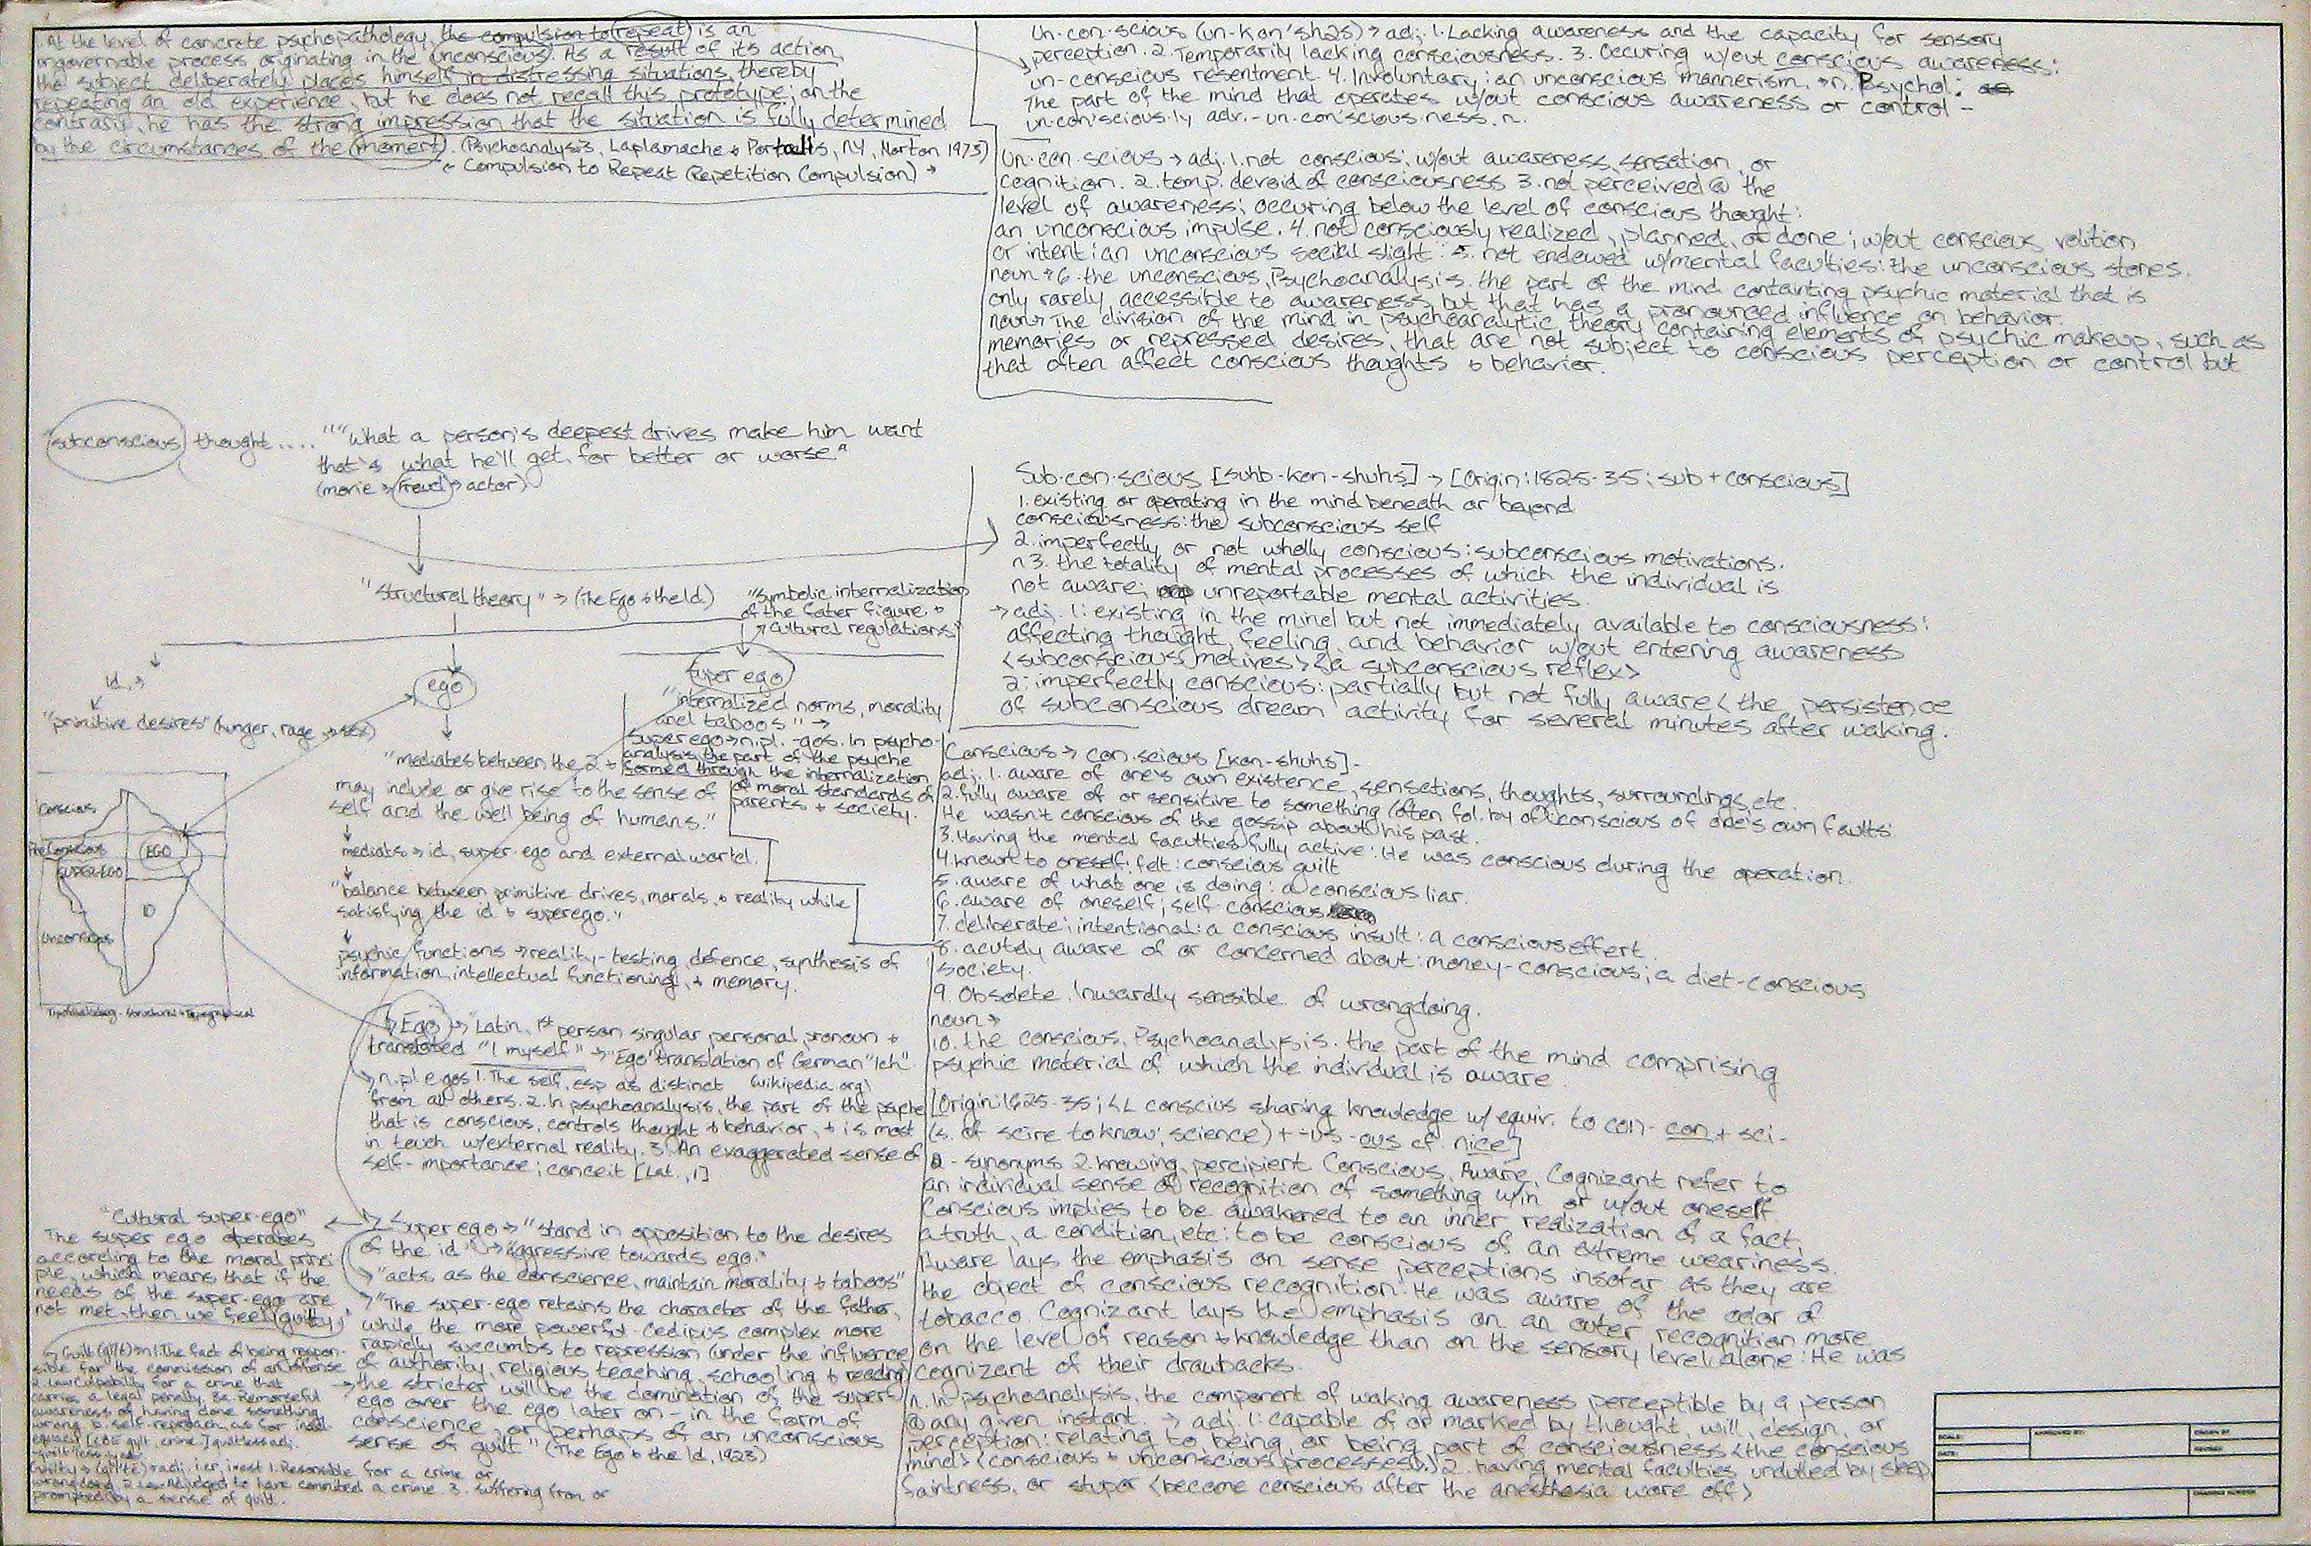 1. At the level of concrete psychopathology, the compulsion to repeat is an
ungovernable process originating in the unconscious. As a result of its action,
the subject deliberately places himself in distressing situations, thereby
repeating an old experience, but he does not recall this prototype; on the
contrary, he has the strong impression that the situation is fully determined
by the circumstances of the moment. (Psychoanalysis, Laplamache & Portalis, NY, Norton 1973)
" Compulsion to Repeat (Repetition Compulsion) →
Un·con·scious (un-kon'shəs) → adj. 1. Lacking awareness and the capacity for sensory
perception. 2. Temporarily lacking consciousness. 3. Occuring w/out conscious awareness:
un-conscious resentment. 4. Involuntary: an unconscious mannerism. → n. Psychol:
The part of the mind that operates w/out conscious awareness or control -
un·con'scious·ly adv. - un·con'scious·ness. n.
Un·con·scious → adj. 1. not conscious: w/out awareness, sensation, or
cognition. 2. temp. devoid of consciousness 3. not perceived @ the
level of awareness; occuring below the level of conscious thought:
an unconscious impulse. 4. not consciously realized, planned, or done; w/out conscious volition
or intent: an unconscious social slight. 5. not endowed w/mental faculties: the unconscious stones.
noun → 6. the unconscious, Psychoanalysis. the part of the mind containing psychic material that is
only rarely accessible to awareness but that has a pronounced influence on behavior.
noun → The division of the mind in psychoanalytic theory containing elements of psychic makeup, such as
memories or repressed desires, that are not subject to conscious perception or control but
that often affect conscious thoughts & behavior.
"subconscious thought.... ""What a person's deepest drives make him want
that's what he'll get, for better or worse"
(movie → Freud → actor)
Sub·con·scious [suhb-kon-shuhs] → [Origin: 1825-35; sub + conscious]
1. existing or operating in the mind beneath or beyond
consciousness: the subconscious self
2. imperfectly or not wholly conscious: subconscious motivations.
n 3. the totality of mental processes of which the individual is
not aware; unreportable mental activities.
→ adj. 1: existing in the mind but not immediately available to consciousness:
affecting thought, feeling, and behavior w/out entering awareness
<subconscious motives> <a subconscious reflex>
2: imperfectly conscious: partially but not fully aware <the persistence
of subconscious dream activity for several minutes after waking.
"Structural theory" → (The Ego & the Id)
"Symbolic internalization
of the fater figure &
cultural regulations"
id →
ego
Super ego
"primitive desires" (hunger, rage → sex)
"internalized norms, morality
and taboos" →
Superego → n. pl. -gos. In psycho-
analysis, the part of the psyche
formed through the internalization
of moral standards of
parents + society.
"mediates between the 2 +
may include or give rise to the sense of
self and the well being of humans."
mediats → id, super-ego and external world.
"balance between primitive drives, morals, & reality while
satisfying the id & superego."
psychic functions → reality-testing, defence, synthesis of
information, intellectual functioning, + memory.
Conscious
PreConscious
EGO
SUPER-EGO
ID
Unconscious
Structural + Topographical
Ego → "Latin, 1st person singular personal pronoun +
translated "I myself" → "Ego" translation of German "Ich"
(wikipedia.org)
n. pl egos 1. The self, esp as distinct
from all others. 2. In psychoanalysis, the part of the psyche
that is conscious, controls thought & behavior, + is most
in touch w/external reality. 3. An exaggerated sense of
self-importance; conceit [Lat., I]
Conscious → con·scious [kon-shuhs].
adj. 1. aware of one's own existence, sensations, thoughts, surroundings, etc.
2. fully aware of or sensitive to something (often fol. by of): conscious of one's own faults:
He wasn't conscious of the gossip about his past.
3. Having the mental faculties fully active: He was conscious during the operation.
4. known to oneself; felt: conscious guilt
5. aware of what one is doing: a conscious liar.
6. aware of oneself; self-conscious
7. deliberate; intentional: a conscious insult: a conscious effort.
8. acutely aware of or concerned about: money-conscious; a diet-conscious
society.
9. Obsolete. Inwardly sensible of wrongdoing.
noun →
10. the conscious, Psychoanalysis. the part of the mind comprising
psychic material of which the individual is aware.
[Origin: 1625-35; <L conscius sharing knowledge w/ equiv. to con- con + sci-
(s. of scire to know; science) + -us -ous cf. nice]
- synonyms 2. knowing, percipient. Conscious, Aware, Cognizant refer to
an individual sense of recognition of something w/in or w/out oneself.
Conscious implies to be awakened to an inner realization of a fact,
a truth, a condition, etc: to be conscious of an extreme weariness.
Aware lays the emphasis on sense perceptions insofar as they are
the object of conscious recognition: He was aware of the odor of
tobacco. Cognizant lays the emphasis on an outer recognition more
on the level of reason & knowledge than on the sensory level alone: He was
Cognizant of their drawbacks.
n. In psychoanalysis, the component of waking awareness perceptible by a person
@ any given instant. → adj. 1: capable of or marked by thought, will, design, or
perception: relating to being, or being part of consciousness <the conscious
mind> <conscious & unconscious processes> 2. having mental faculties undulled by sleep,
faintness, or stupor <become conscious after the anesthesia wore off>
"Cultural super-ego"
The super ego operates
according to the moral princi
ple, which means that if the
needs of the super-ego are
not met, then we feel guilty,
Super ego → "stand in opposition to the desires
of the id" → "aggressive towards ego."
"acts as the conscience, maintain morality & taboos"
"The super-ego retains the character of the father,
while the more powerful Oedipus complex more
rapidly succumbs to repression (under the influence
of authority, religious teaching, schooling & reading)
the stricter will be the domination of the super
ego over the ego later on - in the form of
conscience, or perhaps of an unconscious
sense of guilt" (The Ego & the Id, 1923)
Guilt (gilt) → n 1. The fact of being respon-
sible for the commission of an offense
2. Law Culpability for a crime that
carries a legal penalty. 3a. Remorseful
awareness of having done something
wrong. b. self-reproach as for inad
equacy [<OE gylt, crime.] guiltless adj.
Guilty → (gil'tē) → adj. i·er, i·est 1. Responsible for a crime or
wrongdoing 2. Law. Adjudged to have commited a crime. 3. Suffering from or
prompted by a sense of guilt.
SCALE:
APPROVED BY:
DRAWN BY
DATE:
REVISED
DRAWING NUMBER